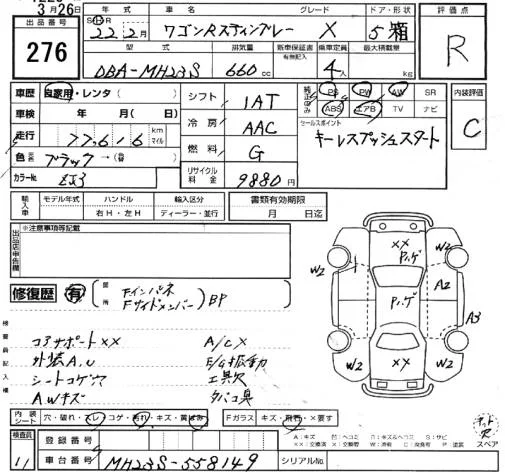 3月26日
出品番号
276
年式
車名
グレード
ドア・形状
評価点
22年2月
ワゴンRスティングレー
X
5 箱
R
型式
排気量
新車保証書
乗車定員
最大積載量
有無記入
DBA-MH23S
660cc
4人
kg
車歴
自家用・レンタ ( )
シフト
1AT
純正のみ
PS
PW
AW
SR
ABS
エアB
TV
ナビ
内装評価
C
車検
年 月( 日)
冷房
AAC
セールスポイント
キーレスプッシュスタート
走行
77,616
km
マイル
燃料
G
色
ブラック
カラーNo.
ZJ3
リサイクル料金
9880円
輸入車
モデル年式
ハンドル
輸入区分
書類有効期限
右H・左H
ディーラー・並行
月 日迄
出品店申告欄
※注意事項等記載
修復歴
有
箇所
Fインパネ
Fサイドメンバー
BP
検査員記入欄
コアサポートXX
A/CX
外装A,U
E/G振動
シートコゲ穴
工具欠
AWキズ
タバコ臭
XX
Pハゲ
W2
W2
A2
Pハゲ
A3
W2
XX
W2
内装シート
穴・破れ・スレ・コゲ・汚れ・キズ・黄ばみ
Fガラス
キズ・飛石・×要す
検査員
11
登録番号
車台番号
MH23S-558149
シリアルNo.
欠
スペア